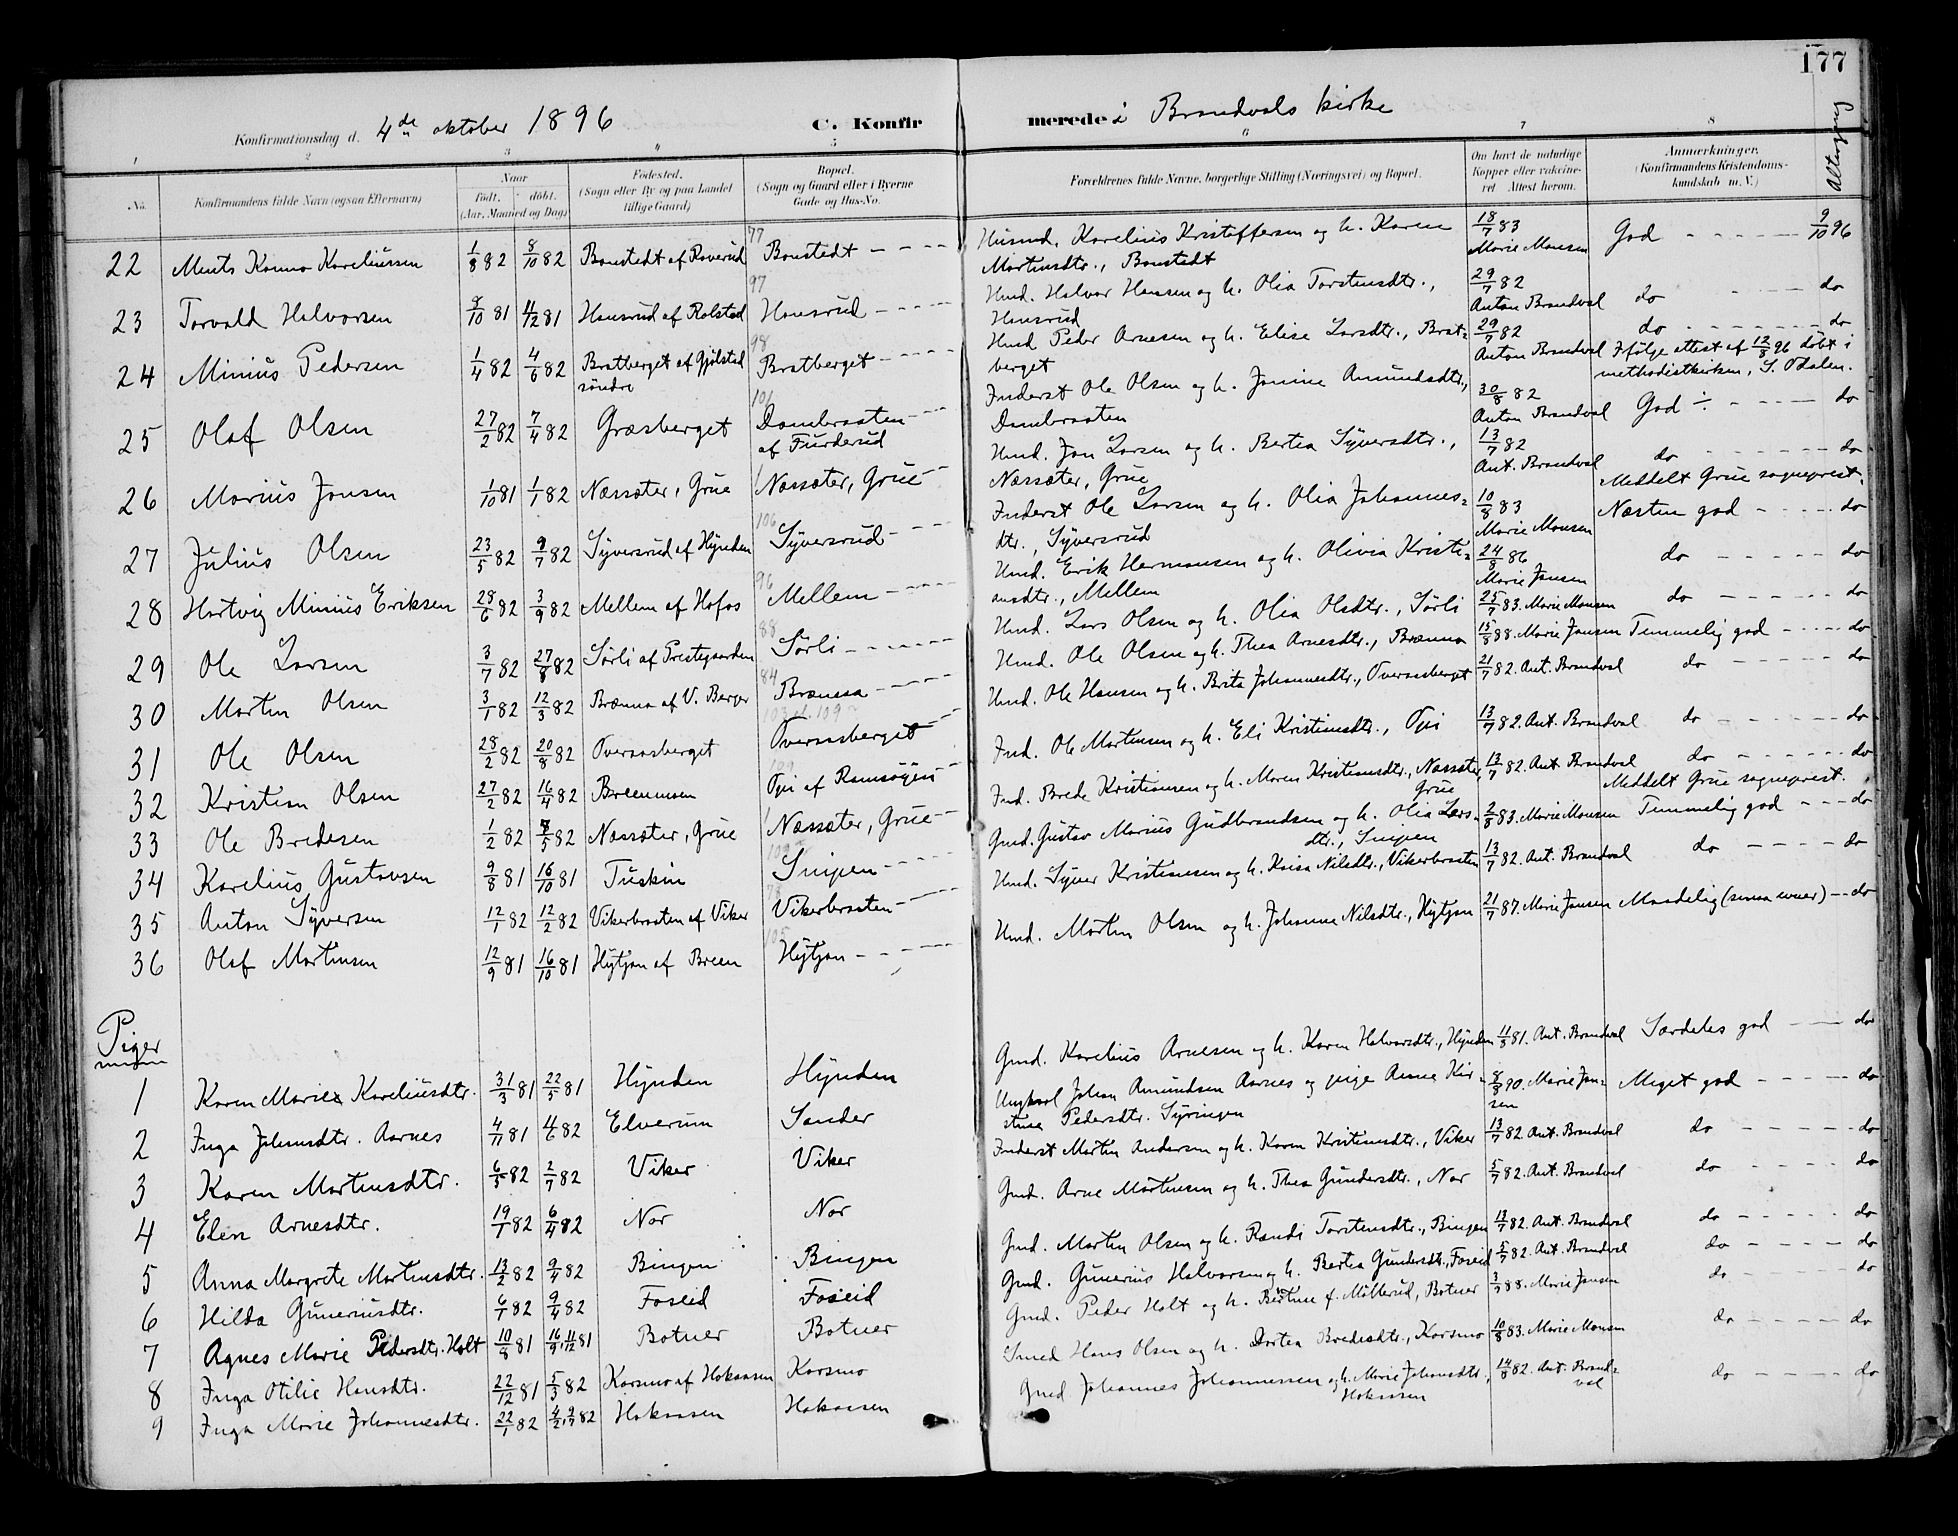 177
Konfirmationsdag d. 4de oktober 1896 C. Konfirmerede i Brandvals kirke
Altergang
1 2 3 4 5 6 7 8
No. Konfirmandens fulde Navn (ogsaa Efternavn) Naar født. døbt. (Aar, Maaned og Dag) Fødested. (Sogn eller By og paa Landet tillige Gaard) Bopæl. (Sogn og Gaard eller i Byerne Gade og Hus-No. Forældrenes fulde Navne, borgerlige Stilling (Næringsvei) og Bopæl. Om havt de naturlige Kopper eller vakcineret. Attest herom. Anmærkninger. (Konfirmandens Kristendomskundskab m. V.)
22 Ments Konno Kareliussen 1/8 82 8/10 82 Bonstedt af Roverud 77 Bonstedt Husmd. Karelius Kristoffersen og h. Karen Martinsdtr., Bonstedt 18/7 83 Marie Monsen God 9/10 96
23 Torvald Halvorsen 9/10 81 11/12 81 Hansrud af Rolstad 97 Hansrud Hmd. Halvor Hansen og h. Olia Torstensdtr., Hansrud 29/7 82 Anton Brandval do do
24 Minius Pedersen 1/4 82 4/6 82 Bratberget af Gjølstad søndre 98 Bratberget Hmd Peder Arnesen og h. Elise Larsdtr., Bratberget 29/7 82 Anton Brandval do do
Ifølge attest af 12/8 96 døbt i methodistkirken, S. Odalen.
25 Olaf Olsen 27/2 82 7/4 82 Græsberget 101 Dambraaten af Furderud Inderst Ole Olsen og h. Jonine Amundsdtr., Dambraaten 30/8 82 Anton Brandval God ÷ do
26 Marius Jonsen 1/10 81 1/1 82 Næssæter, Grue Næssæter, Grue Hmd. Jon Larsen og h. Bertea Syversdtr., Næssæter, Grue 13/7 82 Ant. Brandval do do
Meddelt Grue sogneprest.
27 Julius Olsen 23/5 82 9/7 82 Syversrud af Hynden 106 Syversrud Inderst Ole Larsen og h. Olia Johannesdtr., Syversrud 10/8 83 Marie Monsen Næsten god do
28 Hartvig Minius Eriksen 28/6 82 3/9 82 Mellem af Hofos 96 Mellem Hmd. Erik Hermansen og h. Olivia Kristiansdtr., Mellem 24/8 86 Marie Jansen do do
29 Ole Larsen 3/7 82 27/8 82 Sørli af Prestegaarden 88 Sørli Hmd. Lars Olsen og h. Olia Olsdtr., Sørli 25/7 83. Marie Monsen do do
30 Martin Olsen 3/1 82 12/3 82 Brænna af V. Berger 84 Brænna Hmd. Ole Olsen og h. Thea Arnesdtr., Brænna 15/8 88. Marie Jansen Temmelig god do
31 Ole Olsen 28/2 82 20/8 82 Overaasberget Overaasberget Hmd. Ole Hansen og h. Brita Johannesdtr., Overaasberget 21/7 82. Ant. Brandval do do
32 Kristian Olsen 27/2 82 16/4 82 Breenmoen 109 Opi af Ramsøgen Ind. Ole Martinsen og h. Eli Kristiansdtr., Opi 13/7 82. Ant. Brandval do do
33 Ole Bredesen 1/2 82 7/5 82 Næssæter, Grue Næssæter, Grue Ind. Brede Kristiansen og h. Maren Kristiansdtr., Næssæter, Grue 13/7 82. Ant Brandval do do
Meddelt Grue sogneprest.
34 Karelius Gustavsen 9/8 81 16/10 81 Tuskin Snipen Gmd. Gustav Marius Gudbrandsen og h. Olia Larsdtr., Snipen 2/8 83. Marie Monsen Temmelig god do
35 Anton Syversen 12/1 82 12/2 82 Vikerbraaten af Viker 78 Vikerbraaten Hmd. Syver Kristiansen og h. Kaisa Nilsdtr., Vikerbraaten 13/7 82. Ant. Brandval do do
36 Olaf Martinsen 12/9 81 16/10 81 Hytjan af Breen 105 Hytjan Hmd. Martin Olsen og h. Johanne Nilsdtr., Hytjan 21/7 87. Marie Jansen Maadelig do
Piger
1 Karen Marie Kareliusdtr. 31/3 81 22/5 81 Hynden Hynden Gmd. Karelius Arnesen og h. Karen Halvorsdtr., Hynden 11/8 81. Ant. Brandval Særdeles god do
2 Inga Johansdtr. Aarnes 4/11 81 4/6 82 Elverum Sander Ungkarl Johan Amundsen Aarnes og pige Anne Kirstine Pedersdtr. Syringen 8/8 90. Marie Jansen Meget god do
3 Karen Martinsdtr. 6/5 82 2/7 82 Viker Viker Inderst Martin Andersen og h. Karen Kristiansdtr., Viker 13/7 82. Ant. Brandval do do
4 Elen Arnesdtr. 19/1 82 6/4 82 Nor Nor Gmd. Arne Martinsen og h. Thea Gundersdtr., Nor 5/7 82. Ant. Brandval do do
5 Anna Margrete Martinsdtr. 13/2 82 9/4 82 Bingen Bingen Gmd. Martin Olsen og h. Randi Torstensdtr., Bingen 13/7 82. Ant. Brandval do do
6 Hilda Guneriusdtr. 6/1 82 9/4 82 Foseid Foseid Gmd. Gunerius Halvorsen og h. Bertea Gundersdtr., Foseid 5/7 82. Ant. Brandval do do
7 Agnes Marie Pedersdtr. Holt 10/8 81 16/9, 11/12 81 Botner Botner Gmd. Peder Holt og h. Bertine f. Møllerud, Botner 3/7 88. Marie Jansen do do
8 Inga Otilie Hansdtr. 22/12 81 5/3 82 Korsmo af Hokaasen Korsmo Smed Hans Olsen og h. Dortea Bredesdtr., Korsmo 10/8 83. Marie Monsen do do
9 Inga Marie Johannesdtr. 22/1 82 4/2, 9/7 82 Hokaasen Hokaasen Gmd Johannes Johannessen og h. Marie Johansdtr., Hokaasen 14/8 82. Ant. Brandval do do